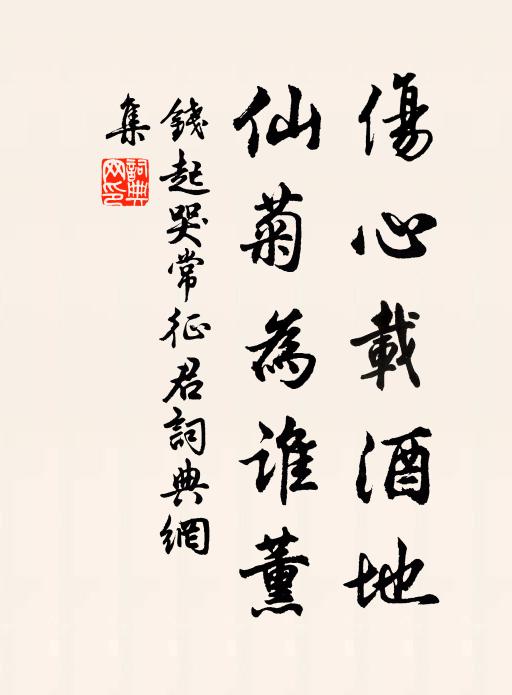 傷心載酒地
仙菊為誰薰
錢起哭常征君詞典網
集
詞典
网印